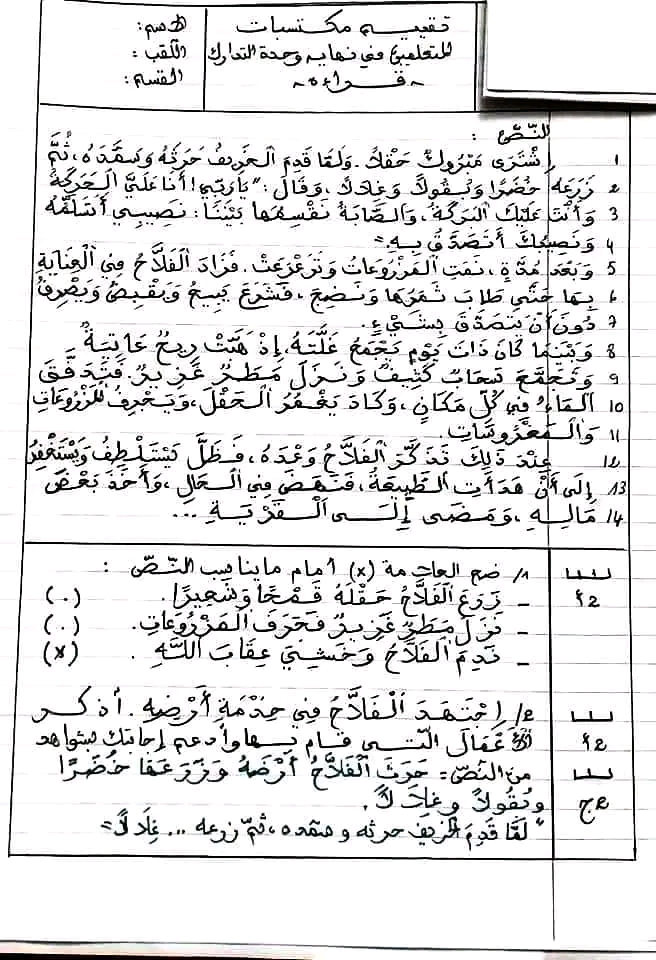 تقييم مكتسبات
المتعلمين في نهاية وحدة التدارك
- قراءة -
الاسم:
اللقب:
القسم:
النّصّ:
1 اِشْتَرَى مَبْرُوكٌ حَقْلًا. وَلَمَّا قَدِمَ الْخَرِيفُ حَرَثَهُ وَسَمَّدَهُ، ثُمَّ
2 زَرَعَهُ خُضَرًا وَبُقُولًا وَغِلَالًا، وَقَالَ: "يَا رَبِّي! أَنَا عَلَيَّ الْحَرَكَةُ
3 وَأَنْتَ عَلَيْكَ الْبَرَكَةُ، وَالصَّابَةُ نَقْسِمُهَا بَيْنَنَا: نَصِيبِي أَسْتَلِمُهُ
4 وَنَصِيبُكَ أَتَصَدَّقُ بِهِ."
5 وَبَعْدَ مُدَّةٍ، نَمَتِ الْمَزْرُوعَاتُ وَتَرَعْرَعَتْ. فَزَادَ الْفَلَّاحُ فِي الْعِنَايَةِ
6 بِهَا حَتَّى طَابَ ثَمَرُهَا وَنَضِجَ، فَشَرَعَ يَبِيعُ وَيَقْبِضُ وَيَصْرِفُ
7 دُونَ أَنْ يَتَصَدَّقَ بِشَيْءٍ.
8 وَبَيْنَمَا كَانَ ذَاتَ يَوْمٍ يَجْمَعُ غَلَّتَهُ، إِذْ هَبَّتْ رِيحٌ عَاتِيَةٌ
9 وَتَجَمَّعَ سَحَابٌ كَثِيفٌ وَنَزَلَ مَطَرٌ غَزِيرٌ. فَتَدَفَّقَ
10 الْمَاءُ فِي كُلِّ مَكَانٍ، وَكَادَ يَغْمُرُ الْحَقْلَ، وَيَجْرِفُ الْمَزْرُوعَاتِ
11 وَالْمَغْرُوسَاتِ.
12 عِنْدَ ذَلِكَ تَذَكَّرَ الْفَلَّاحُ وَعْدَهُ، فَظَلَّ يَسْتَلْطِفُ وَيَسْتَغْفِرُ
13 إِلَى أَنْ هَدَأَتِ الطَّبِيعَةُ، فَنَهَضَ فِي الْحَالِ، وَأَخَذَ بَعْضَ
14 مَالِهِ، وَمَضَى إِلَى الْقَرْيَةِ ...
1/ ضع العلامة (x) أمام ما يناسب النّصّ:
- زَرَعَ الْفَلَّاحُ حَقْلَهُ قَمْحًا وَشَعِيرًا. (.)
- نَزَلَ مَطَرٌ غَزِيرٌ فَجَرَفَ الْمَزْرُوعَاتِ. (.)
- نَدِمَ الْفَلَّاحُ وَخَشِيَ عِقَابَ اللَّهِ. (x)
2/ اِجْتَهَدَ الْفَلَّاحُ فِي خِدْمَةِ أَرْضِهِ. أذكر
الأعمال التي قام بها وأدعم إجابتك بشواهد
من النصّ = حَرَثَ الْفَلَّاحُ أَرْضَهُ وَزَرَعَهَا خُضَرًا
وَبُقُولًا وَغِلَالًا.
"لَمَّا قَدِمَ الخريف حرثه وسمّده، ثمّ زرعه ... غِلَالًا"